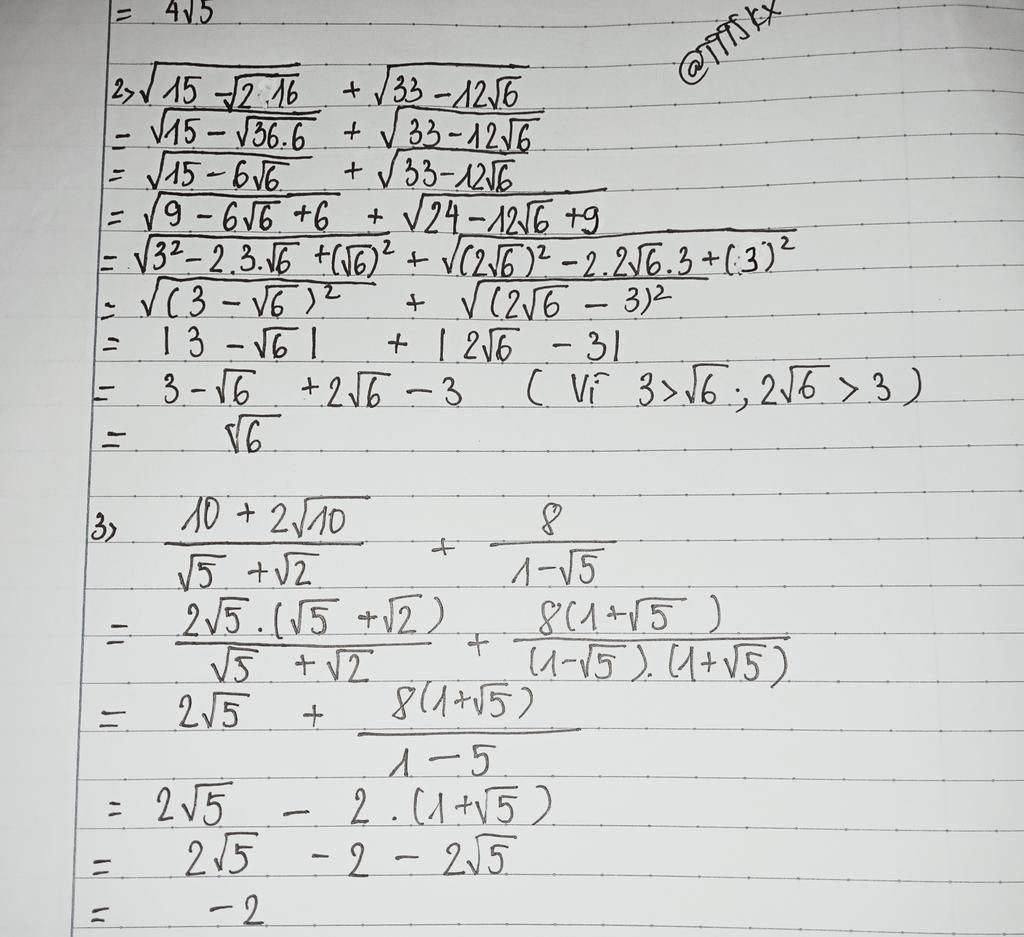 = 4√5
@1995kx
2> √(15 - √(2 16)) + √(33 - 12√6)
= √(15 - √(36.6)) + √(33 - 12√6)
= √(15 - 6√6) + √(33 - 12√6)
= √(9 - 6√6 + 6) + √(24 - 12√6 + 9)
= √(3² - 2.3.√6 + (√6)²) + √((2√6)² - 2.2√6.3 + (3)²)
= √((3 - √6)²) + √((2√6 - 3)²)
= |3 - √6| + |2√6 - 3|
= 3 - √6 + 2√6 - 3 (Vì 3 > √6; 2√6 > 3)
= √6
3> (10 + 2√10)/(√5 + √2) + 8/(1 - √5)
= (2√5.(√5 + √2))/(√5 + √2) + (8(1 + √5))/((1 - √5).(1 + √5))
= 2√5 + (8(1 + √5))/(1 - 5)
= 2√5 - 2.(1 + √5)
= 2√5 - 2 - 2√5
= -2